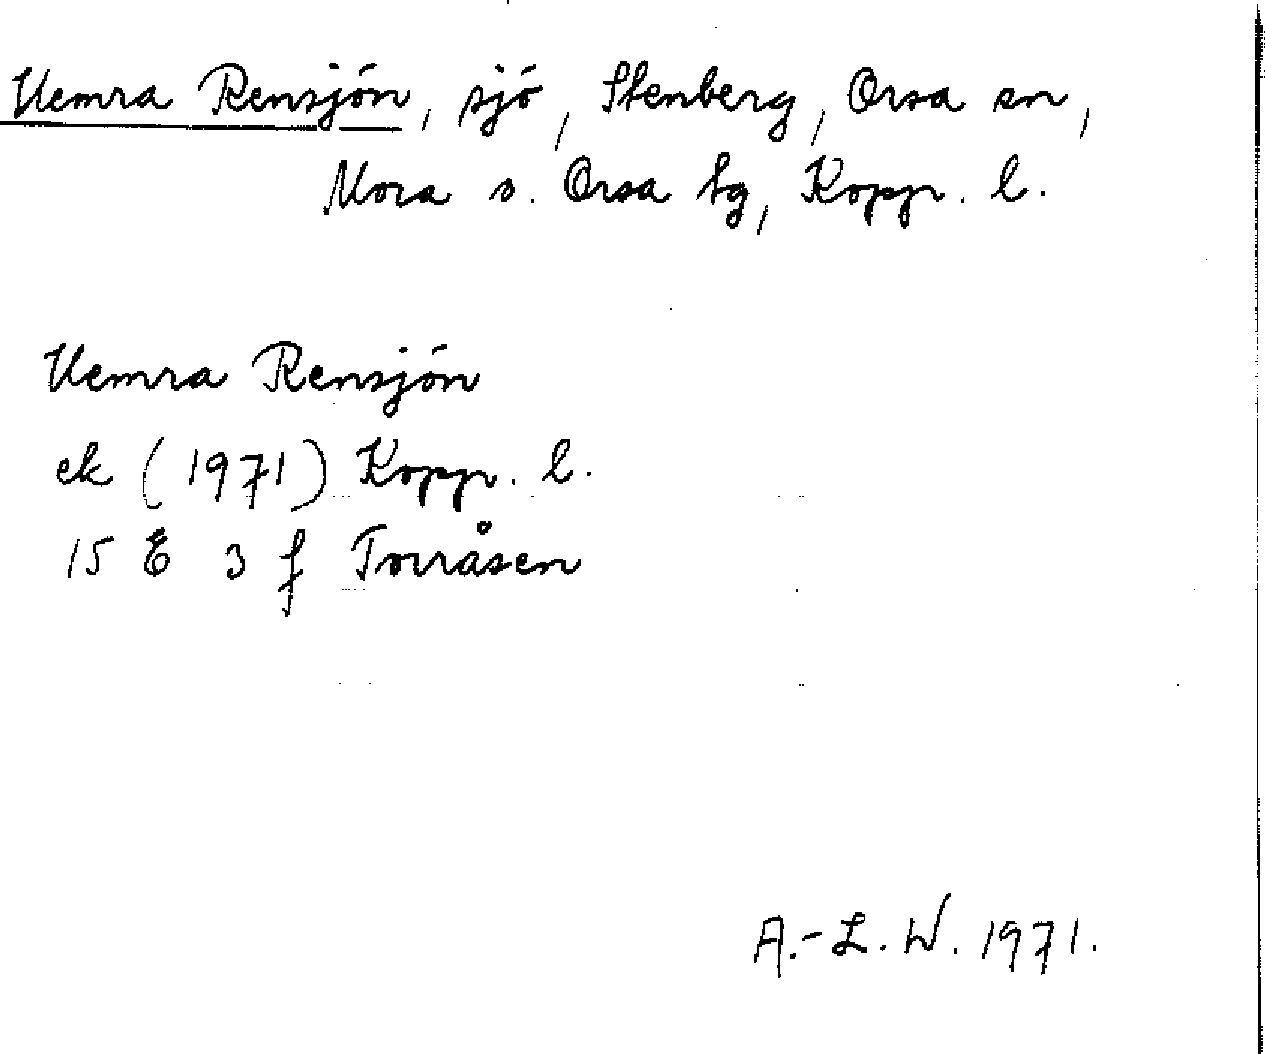 Uemra Rensjön, sjö, Stenberg, Orsa sn,
Mora o. Orsa tg, Kopp. l.
Uemra Rensjön
ek (1971) Kopp. l.
15 E 3 f Torråsen
A.-L. W. 1971.